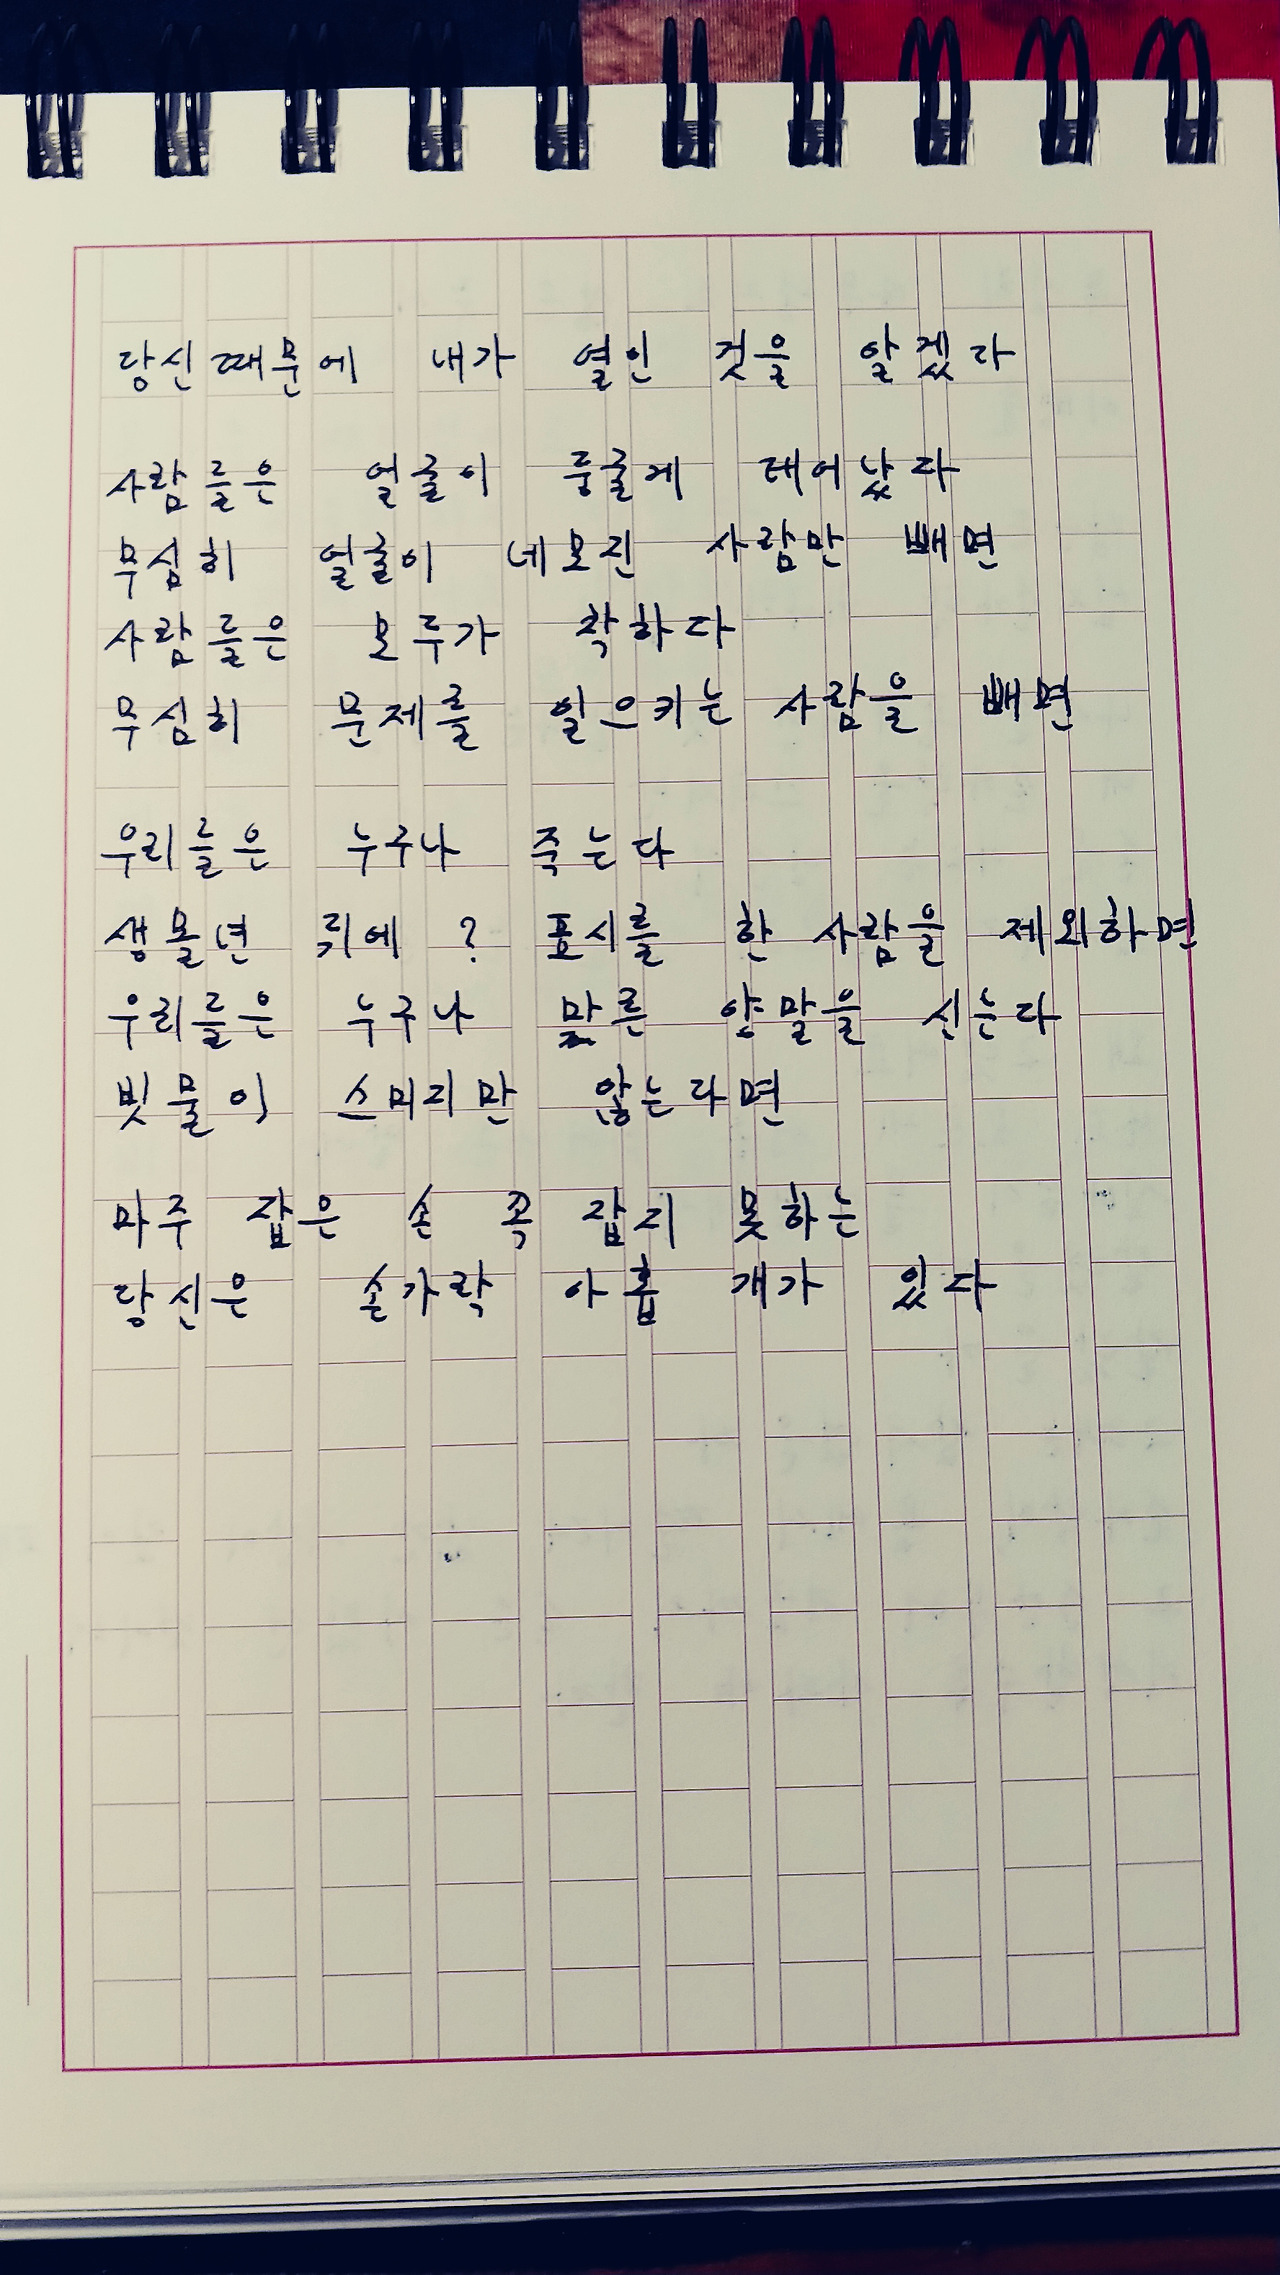 당신 때문에 내가 열인 것을 알겠다
사람들은 얼굴이 둥글게 태어났다
무심히 얼굴이 네모진 사람만 빼면
사람들은 모두가 착하다
무심히 문제를 일으키는 사람을 빼면
우리들은 누구나 죽는다
생몰년 뒤에 ? 표시를 한 사람을 제외하면
우리들은 누구나 마른 양말을 신는다
빗물이 스미지만 않는다면
마주 잡은 손 꼭 잡지 못하는
당신은 손가락 아홉 개가 있다